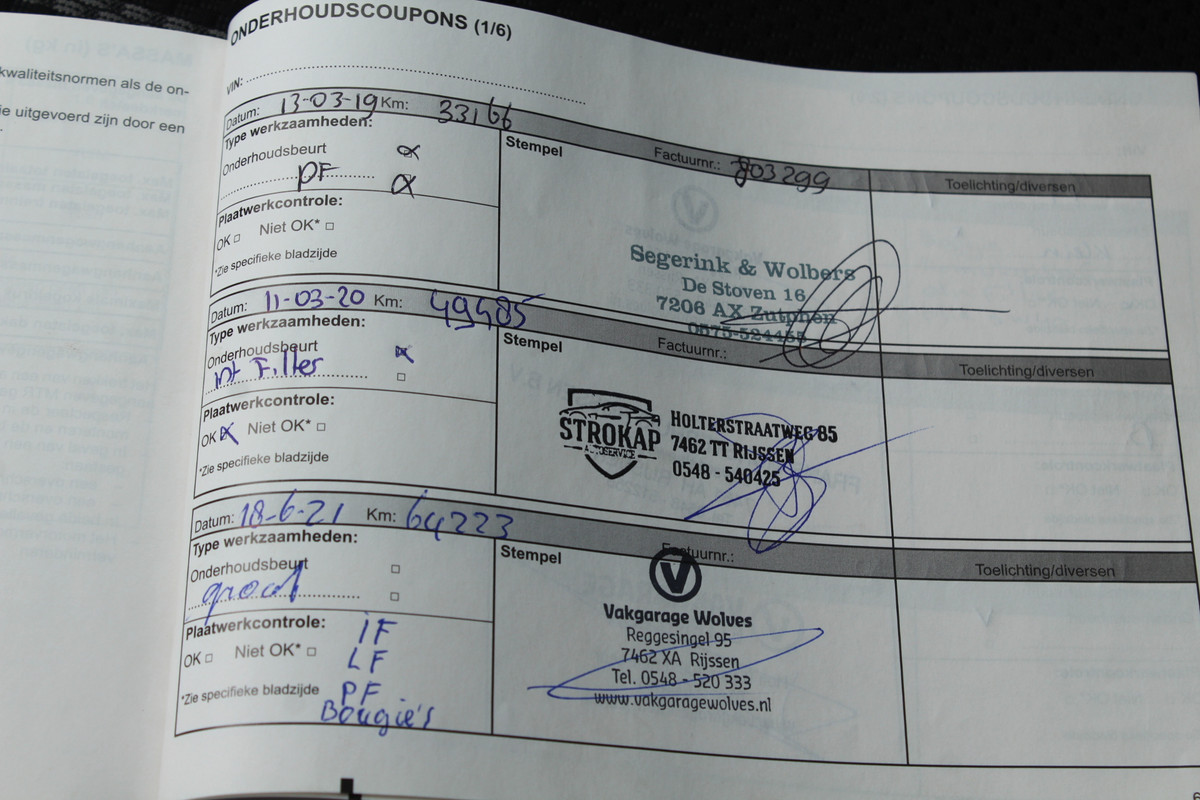 kwaliteitsnormen als de on-
ie uitgevoerd zijn door een
ONDERHOUDSCOUPONS (1/6)
VIN:
Datum: 13-03-19 Km: 33166
Type werkzaamheden:
Onderhoudsbeurt
PF
Plaatwerkcontrole:
OK Niet OK*
*Zie specifieke bladzijde
Stempel
Factuurnr.: 703299
Toelichting/diversen
Segerink & Wolbers
De Stoven 16
7206 AX Zutphen
0575-524455
Datum: 11-03-20 Km: 49485
Type werkzaamheden:
Onderhoudsbeurt
int Filter
Plaatwerkcontrole:
OK Niet OK*
*Zie specifieke bladzijde
Stempel
Factuurnr.:
Toelichting/diversen
STROKAP
AUTOSERVICE
HOLTERSTRAATWEG 85
7462 TT RIJSSEN
0548 - 540425
Datum: 18-6-21 Km: 64223
Type werkzaamheden:
Onderhoudsbeurt
groot
Plaatwerkcontrole:
OK Niet OK*
*Zie specifieke bladzijde
IF
LF
PF
Bougie's
Stempel
Factuurnr.:
Toelichting/diversen
Vakgarage Wolves
Reggesingel 95
7462 XA Rijssen
Tel. 0548 - 520 333
www.vakgaragewolves.nl